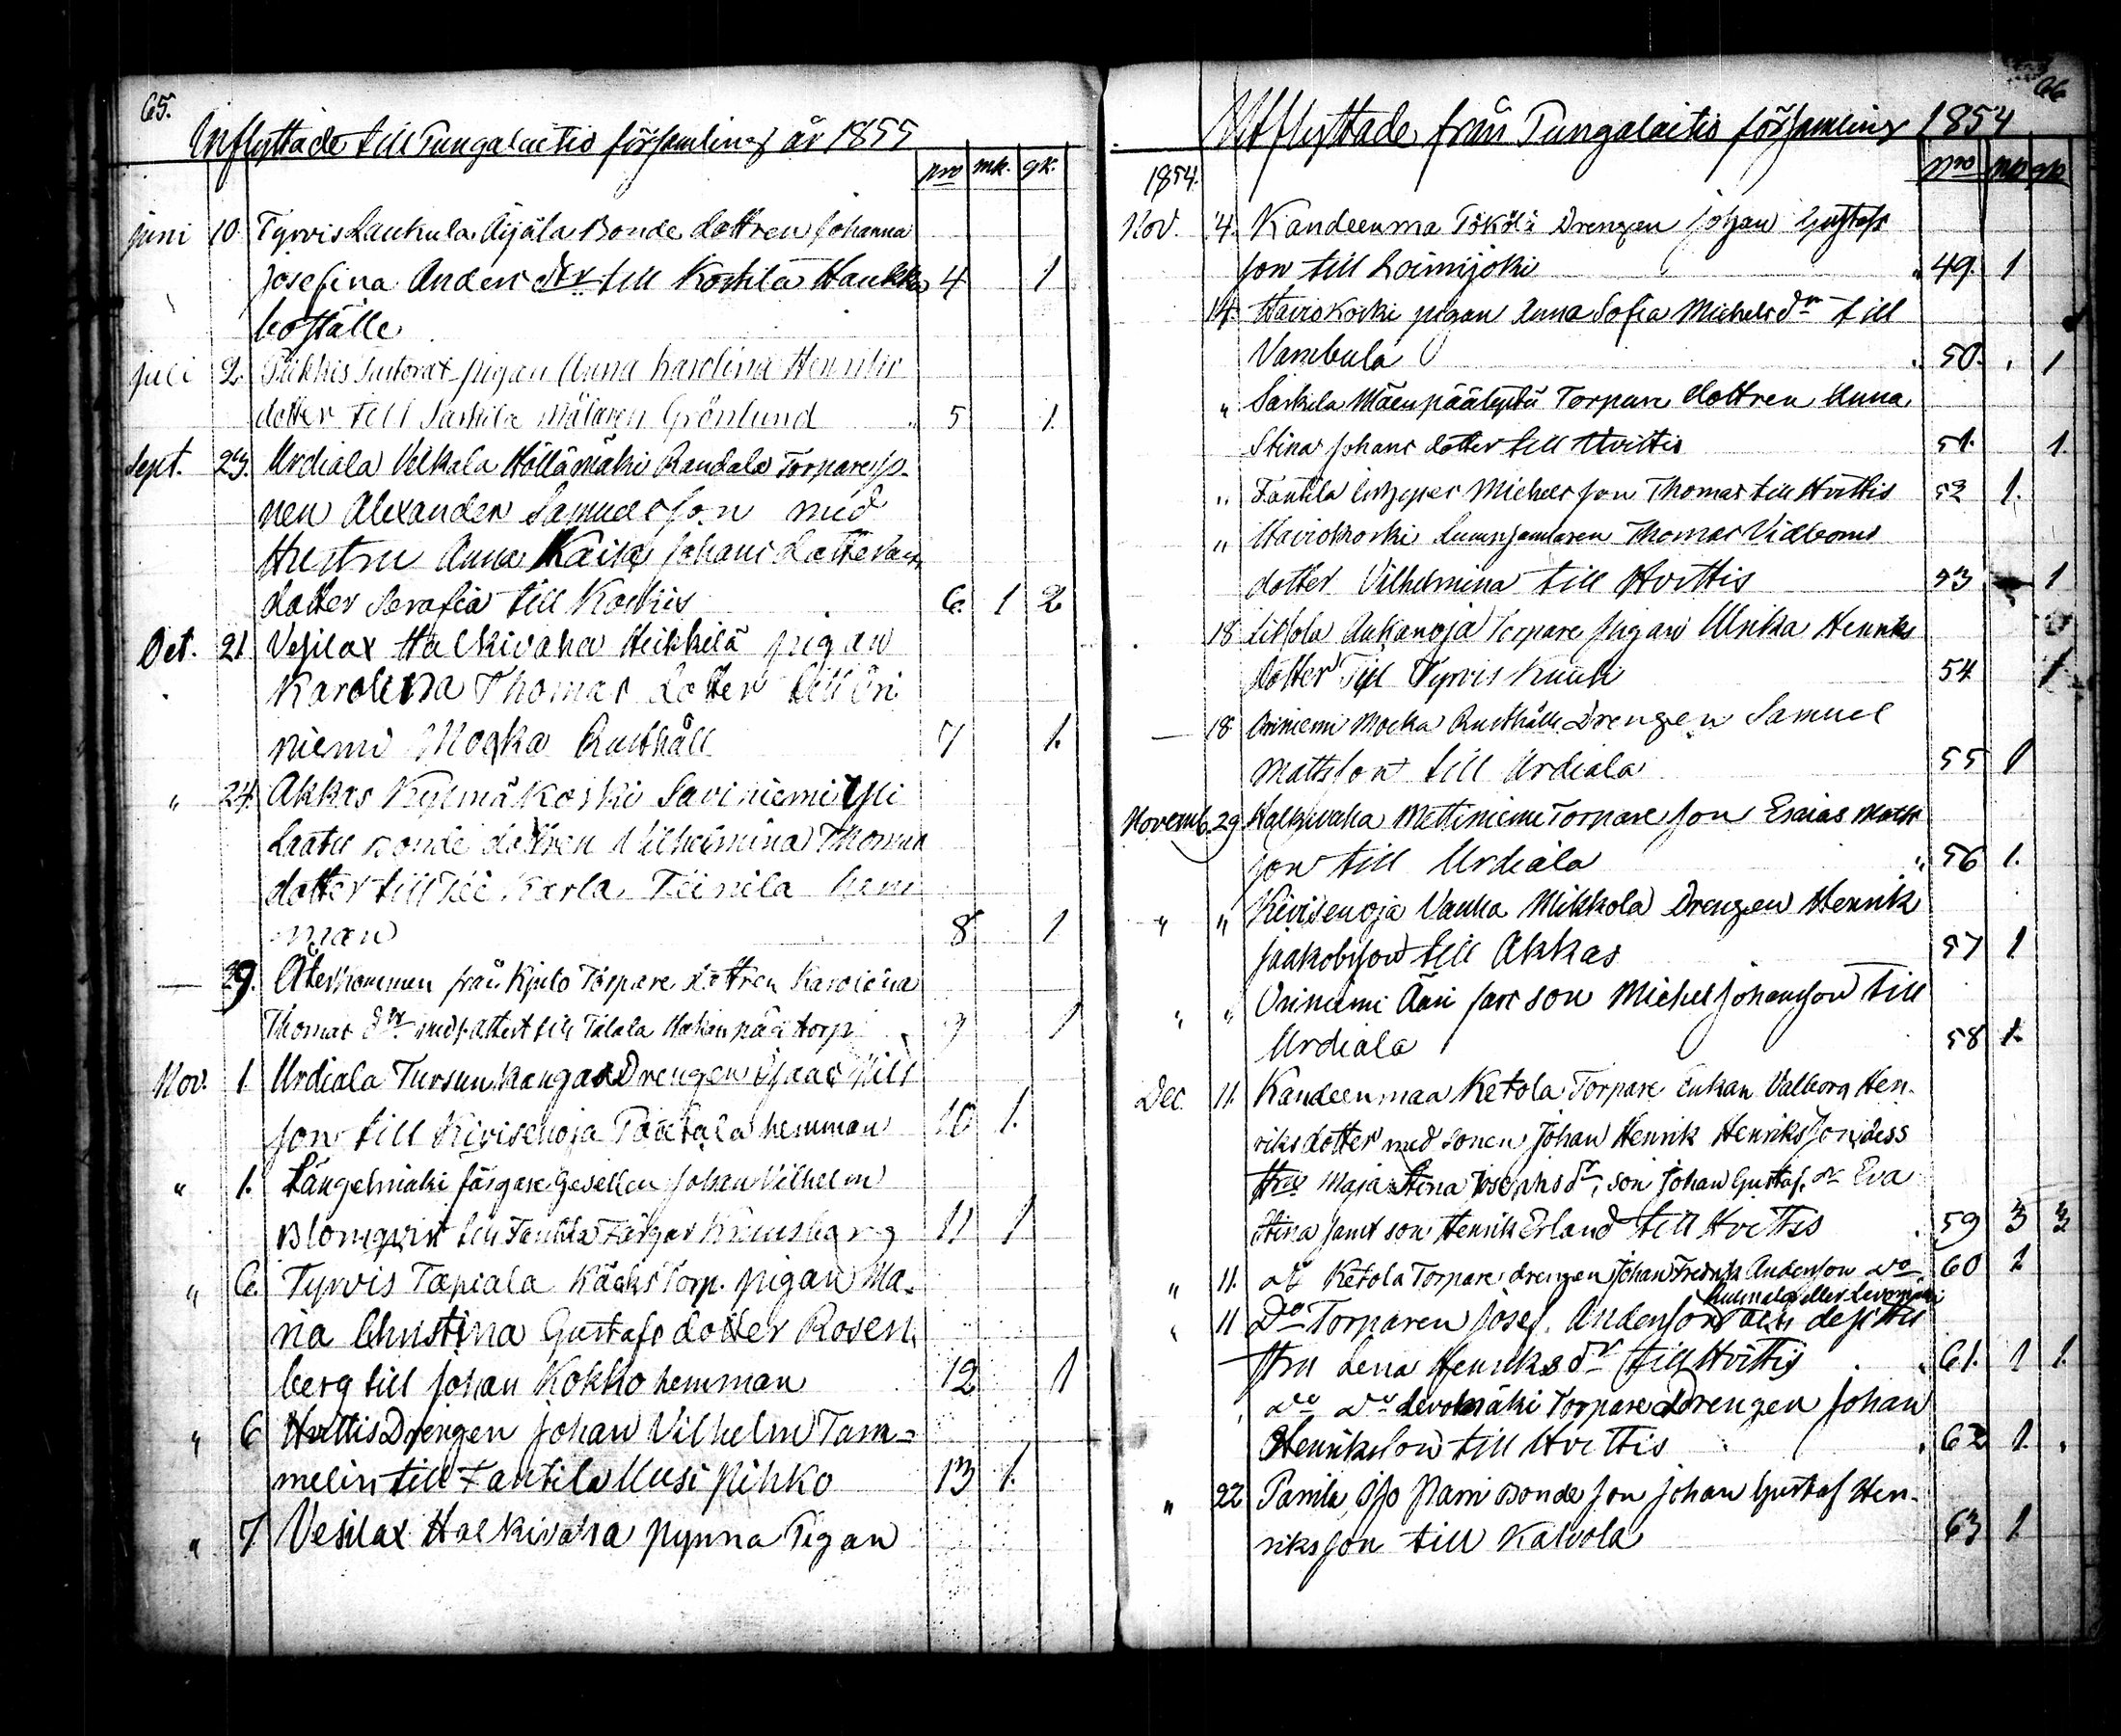 65.
Inflyttade till Pungalaitio församling år 1855
nro mk. qk.
juni 10. Tyrvis Laukula Äijälä Bonde dottren Johanna
Josefina Anders dtr till Kostila Haukka 4 1
boställe
juli 2. Piikkis pigan Anna Karolina Henriks
dotter till Sarkila Målaren Grönlund 5 1.
Sept. 23. Urdiala Velkala Höllämäki Randala Torpare
nen Alexander Samuelsson med
Hustru Anna Kaisa Johans dotter
dotter Serafia till Koskis 6. 1 2
Oct. 21 Vesilax Halkivaha Heikkilä pigan
Karolina Thomas dotter till Ori
niemi Moska Rusthåll 7 1.
" 24. Akkas Kylmäkoski Saviniemi Yli
Laatu Bonde dottren Vilhelmina Thomas
dotter till Karla Teinila hem
man 8 1
— 29. Återkommen från Kjulo Torpare dottren Karolina
Thomas dtr med attest till Talala torp 9 1
Nov. 1. Urdiala Tursunkangas Drengen Isaac Nils
son till Kivisenoja Paatala hemman 10 1.
" 1. Längelmäki färgare Gesällen Johan Vilhelm
Blomqvist till Fantila Färgar 11 1
" 6. Tyrvis Tapiala Torp. pigan Ma-
ria Christina Gustafs dotter Rosen
berg till Johan Kokko hemman 12 1
" 6 Hvittis Drengen Johan Vilhelm Tam=
melin till Fantila Uusi Pihko 13 1.
" 7 Vesilax Halkivaha pynna Pigan
66
Utflyttade från Pungalaitio församling 1854
1854. Nro mk qk
Nov. 4. Kandeenmaa Tökölä Drengen Johan Gustafs
son till Loimijoki 49. 1
14. Haviokoski pigan Anna Sofia Michels dr till
Vambula 50. 1
" Sarkila Mäenpää Torpare dottren Anna
Stina Johans dotter till Hvittis 51. 1.
" Fantila Michelsson Thomas till Hvittis 52 1.
" Haviokoski Thomas Vidboms
dotter Vilhelmina till Hvittis 53 1
18 Liitsola Aukanoja Torpare pigan Ulrika Henriks
dotter Till Tyrvis 54 1
— 18 Oriniemi Moska Rusthålls Drengen Samuel
Mattsson till Urdiala 55 1
Novemb. 29 Halkivaha Mettiniemi Torpare son Esaias Matts
son till Urdiala " 56 1.
" " Kivisenoja Vanha Mikkola Drengen Henrik
Jaakobsson till Akkas 57 1
" " Oriniemi Ääri son Michel Johansson till
Urdiala 58 1.
Dec. 11. Kandeenmaa Ketola Torpare Enkan Valborg Hen-
riksdotter med sonen Johan Henrik Henriksson, dess
Hru Maja Stina Josephs dr, son Johan Gustaf, dr Eva
Stina samt son Henrik Erland till Hvittis 59 3 3
" 11. do Ketola Torpare drengen Johan Fredrik Andersson do 60 1
eller Levomäki
" 11 Do Torparen Josef Andersson
stru Lena Henriks dr till Hvittis 61. 1 1.
do do Levomäki Torpare drengen Johan
Henriksson till Hvittis 62 1.
" 22 Panila Iso Pani Bonde son Johan Gustaf Hen-
riksson till Kalvola 63 1.